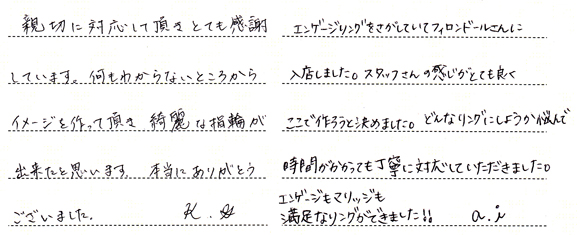 親切に対応して頂きとても感謝
しています。何もわからないところから
イメージを作って頂き 綺麗な指輪が
出来たと思います 本当にありがとう
ございました。
エンゲージリングをさがしていてフィロンドールさんに
入店しました。スタッフさんの感じがとても良く
ここで作ろうと決めました。どんなリングにしようか悩んで
時間がかかっても丁寧に対応していただきました。
エンゲージもマリッジも
満足なリングができました!!
a.i